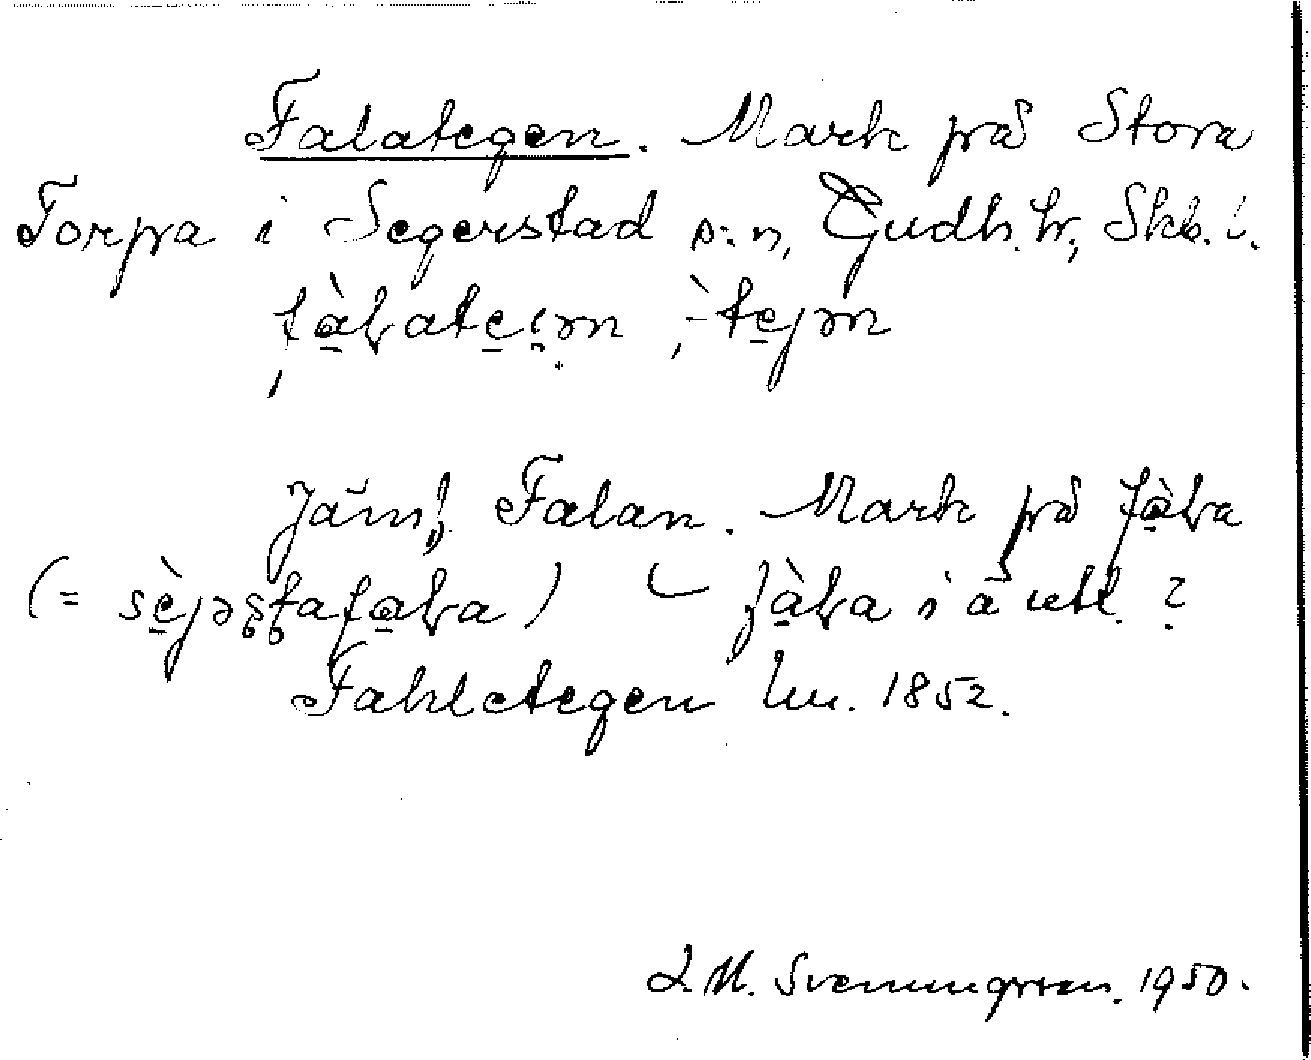 Falategen. Mark på Stora
Torpa i Segerstad s:n, Gudh. hr, Skb. l.
fàƚateın, -̀tejən
Jämf. Falan. Mark på fàƚa
(= sèjəʂʈafaƚa) fàƚa i ä utl. ?
Fahletegen lm. 1852.
L. M. Svenungsson. 1950.